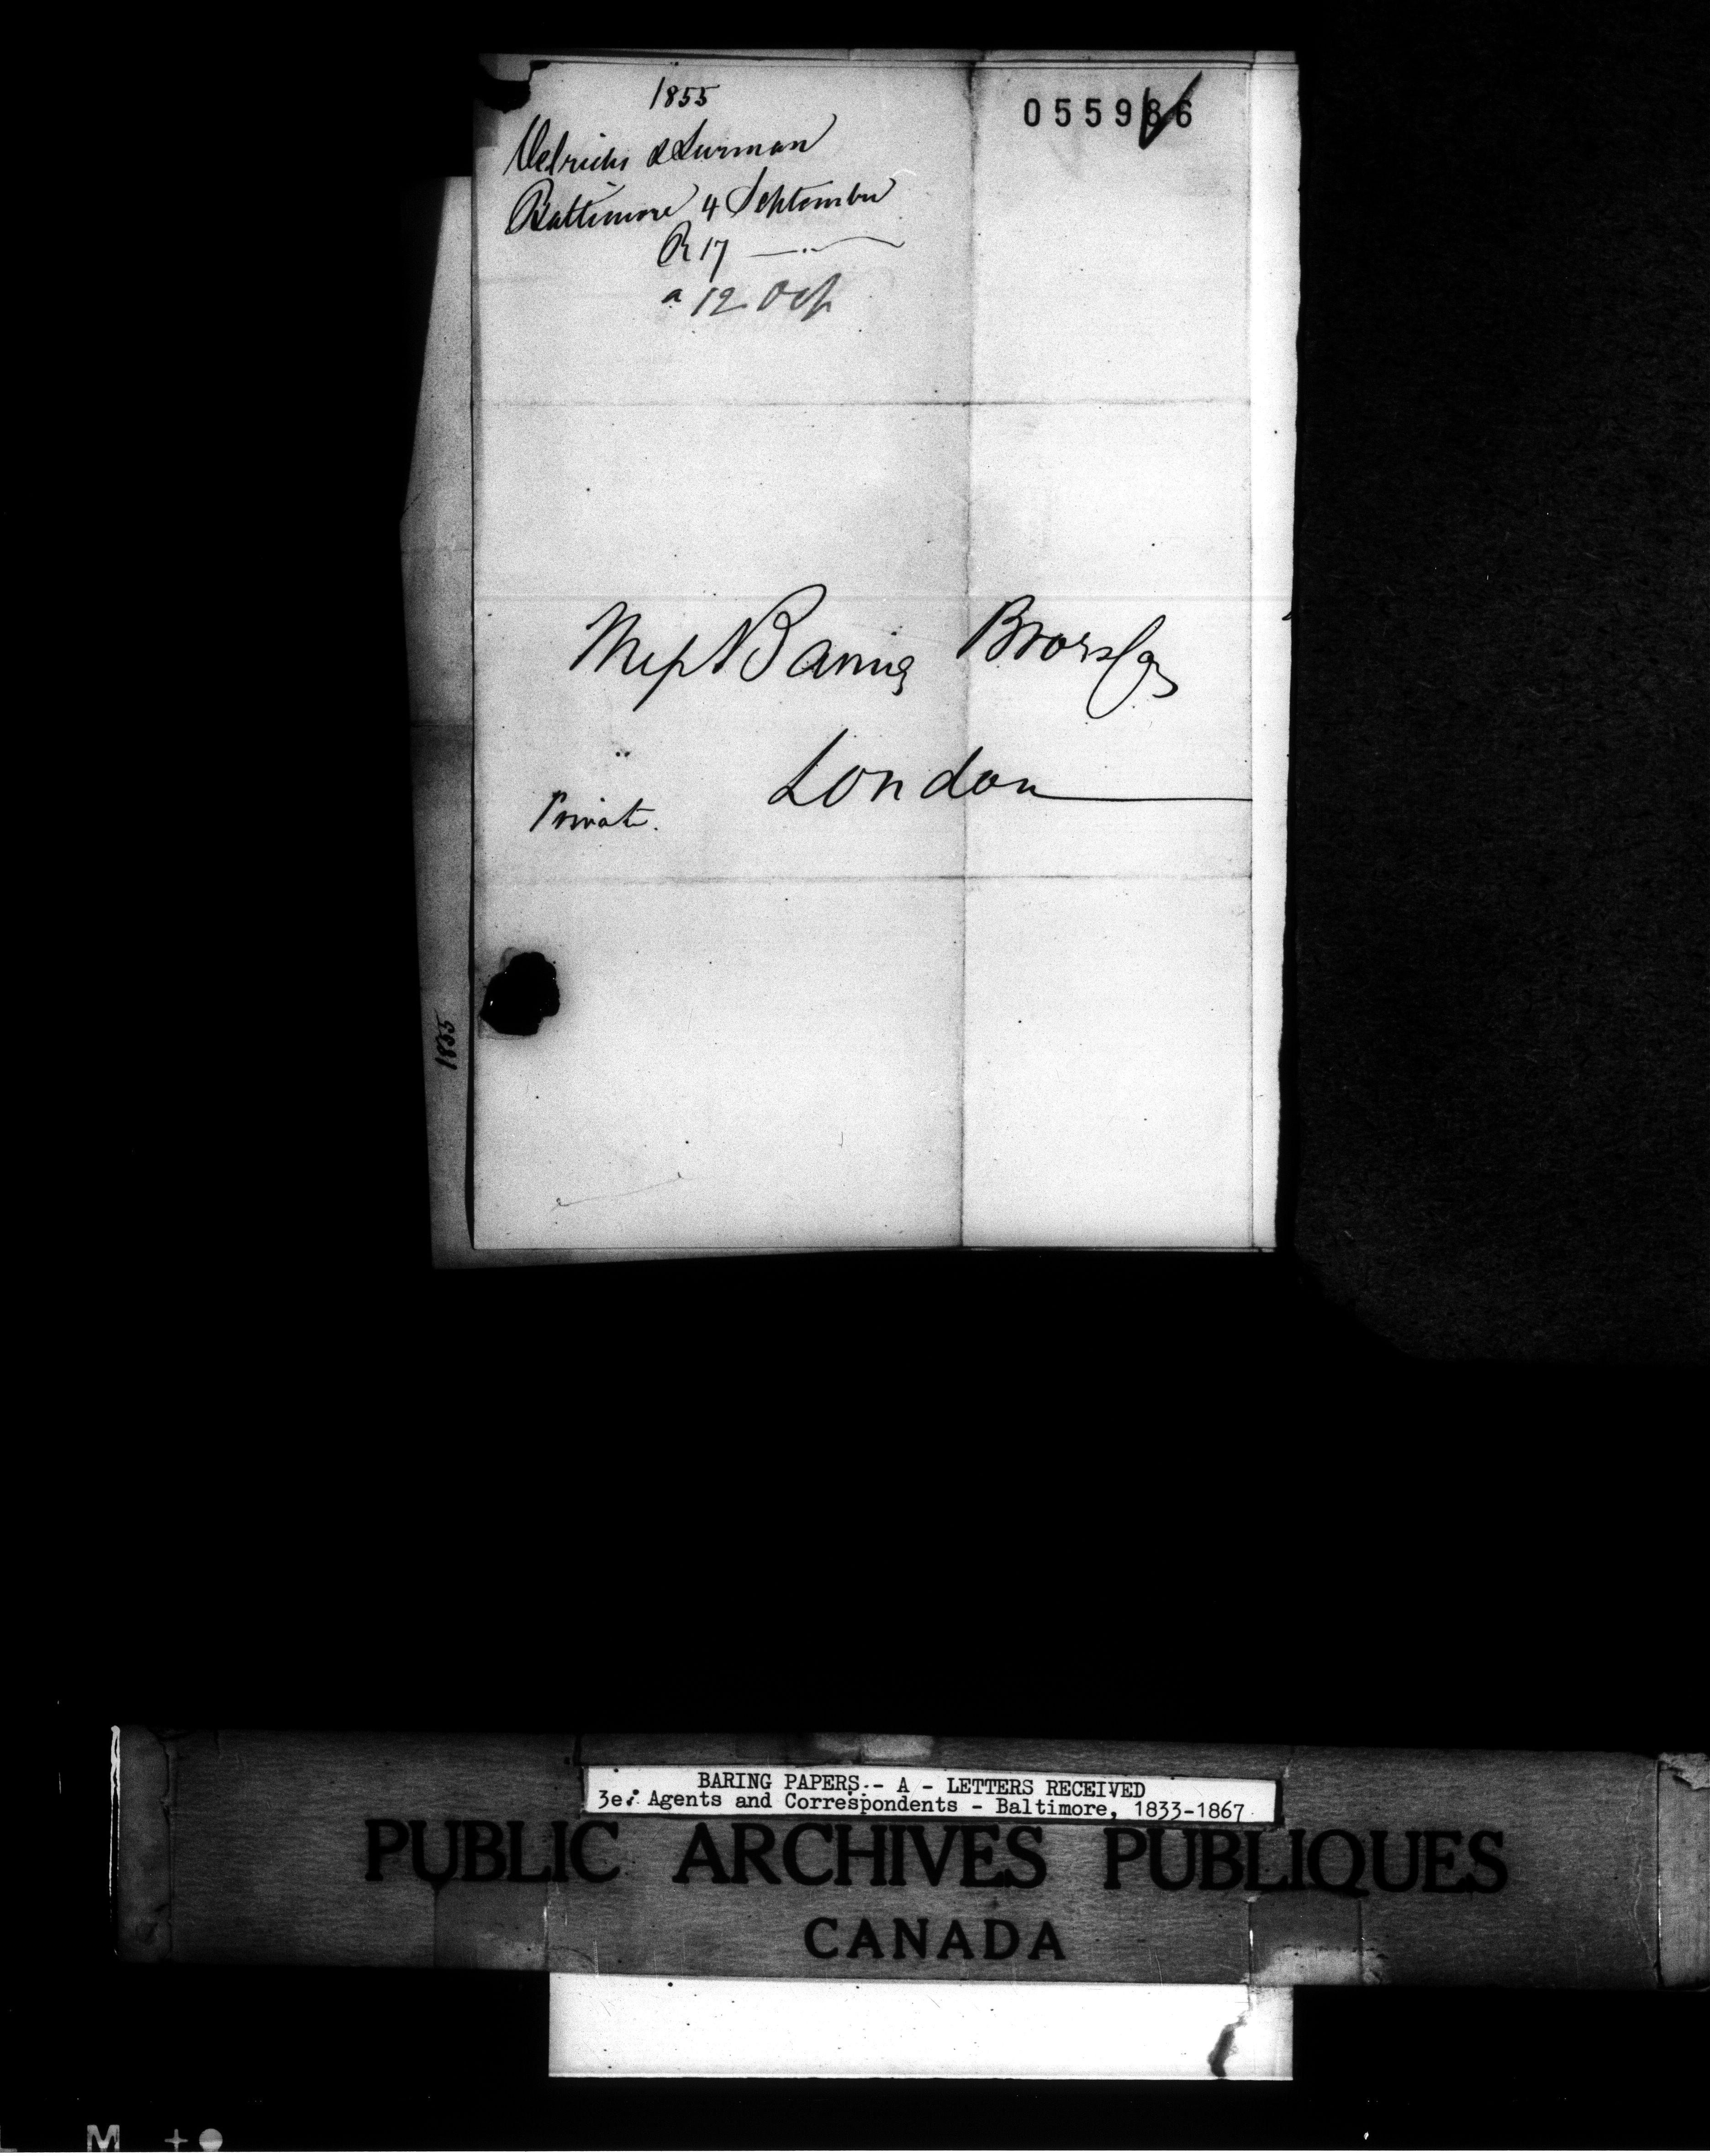 1855
055986
Oelrichs & Lurman
Baltimore 4 September
R 17
a 12 Oct
Messrs Baring Brors & Co
London
Private.
1855
BARING PAPERS - A - LETTERS RECEIVED
3e: Agents and Correspondents - Baltimore, 1833-1867
PUBLIC ARCHIVES PUBLIQUES
CANADA
M +